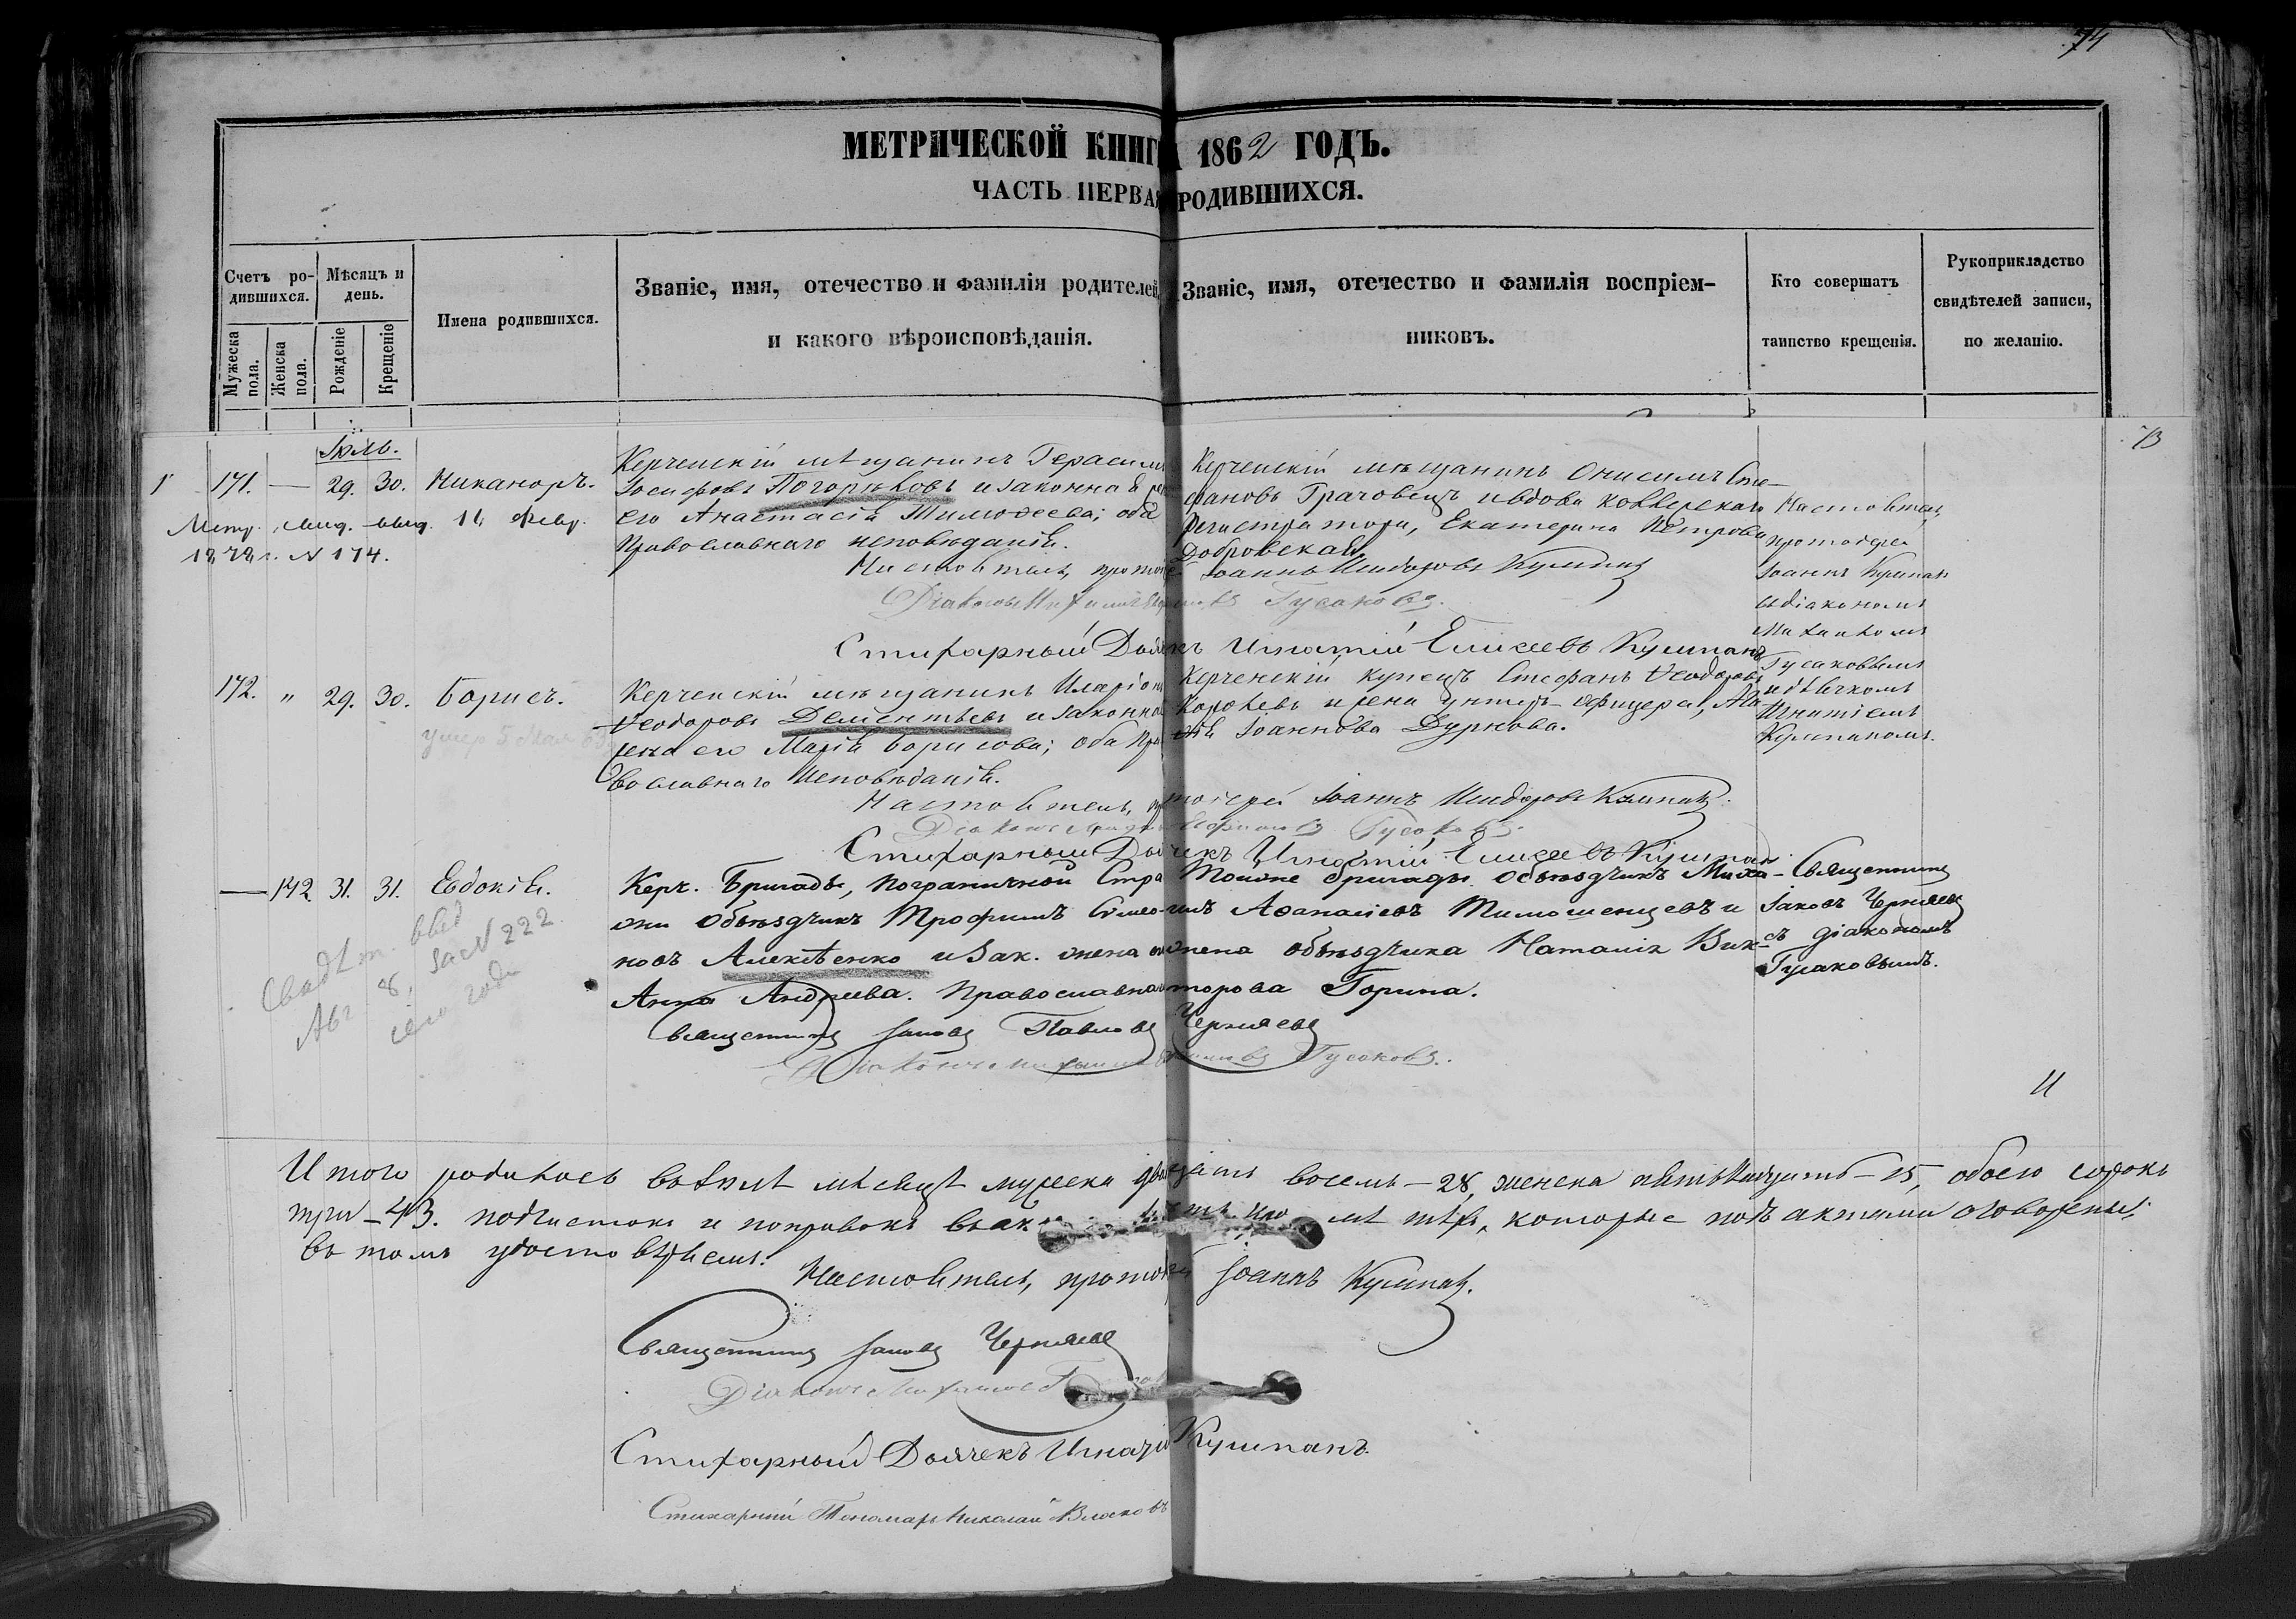 74
МЕТРИЧЕСКОЙ КНИГИ 1862 ГОДЪ.
ЧАСТЬ ПЕРВАЯ РОДИВШИХСЯ.
Счетъ ро-
дившихся.
Мѣсяцъ и
день.
Мужеска
пола.
Женска
пола.
Рожденіе
Крещеніе
Имена родившихся.
Званіе, имя, отечество и фамилія родителей,
и какого вѣроисповѣданія.
Званіе, имя, отечество и фамилія воспріем-
никовъ.
Кто совершатъ
таинство крещенія.
Рукоприкладство
свидѣтелей записи,
по желанію.
73
Іюль.
171. — 29. 30. Никаноръ.
Метр. свид. выд. 11 Февр.
1878 г. N 174.
Керченскій мѣщанинъ Герасимъ
Іосифовъ Погорѣловъ и законная
его Анастасія Тимоѳеева; оба
Православнаго исповѣданія.
Керченскій мѣщанинъ Онисимъ Сте-
фановъ Грачовецъ и вдова коллежскаго
Регистратора, Екатерина Петрова
Добровская.
Настоятель,
протоіерей
Іоаннъ Кушпанъ
съ діакономъ
Михаиломъ
Гусаковымъ
и дьячкомъ
Игнатіемъ
Кушпаномъ.
Настоятель, протоіерей Іоаннъ Исидоровъ Кушпанъ
Діаконъ Михаилъ Гусаковъ.
Стихарный Дьячекъ Игнатій Елисеевъ Кушпанъ
172. " 29. 30. Борисъ.
умер 5 Мая
Керченскій мѣщанинъ Иларіонъ
Ѳеодоровъ Дементьевъ и законная
жена его Марія Борисова; оба Пра
вославнаго Исповѣданія.
Керченскій купецъ Стефанъ Ѳеодоровъ
Королевъ и жена унтеръ-офицера,
Іоаннова Дуркова.
Настоятель, протоіерей Іоаннъ Исидоровъ Кушпанъ.
Діаконъ Гусаковъ.
Стихарный Дьячекъ Игнатій Елисеевъ Кушпанъ
— 142 31. 31. Евдокія.
Свидѣт. выд
Авг 8, за N 222
сего года
Керч. Бригады, пограничной Стра
жи объѣздчикъ Трофимъ Симео-
новъ Алексѣенко и Зак. жена его
Анна Андреева. Православнаго
Тойже бригады объѣздчикъ Миха-
илъ Аѳанасіевъ Тимошенцевъ и
жена объѣздчика Наталія Вик-
торова Горина.
Священникъ
Іаковъ Черняевъ
съ діакономъ
Гусаковымъ.
Священникъ Іаковъ Павловъ Черняевъ
Діаконъ Михаилъ Гусаковъ.
Итого родилось въ Іюлѣ мѣсяцѣ мужеска двадцать восемь – 28, женска пятнадцать – 15, обоего сорокъ
три – 43. подчистокъ и поправокъ кромѣ тѣхъ, которые подъ актами оговорены;
въ томъ удостовѣряемъ.
Настоятель, протоіерей Іоаннъ Кушпанъ.
Священникъ Іаковъ Черняевъ
Діаконъ Михаилъ
Стихарный Дьячекъ Игнатій Кушпанъ.
Стихарный Пономарь Николай